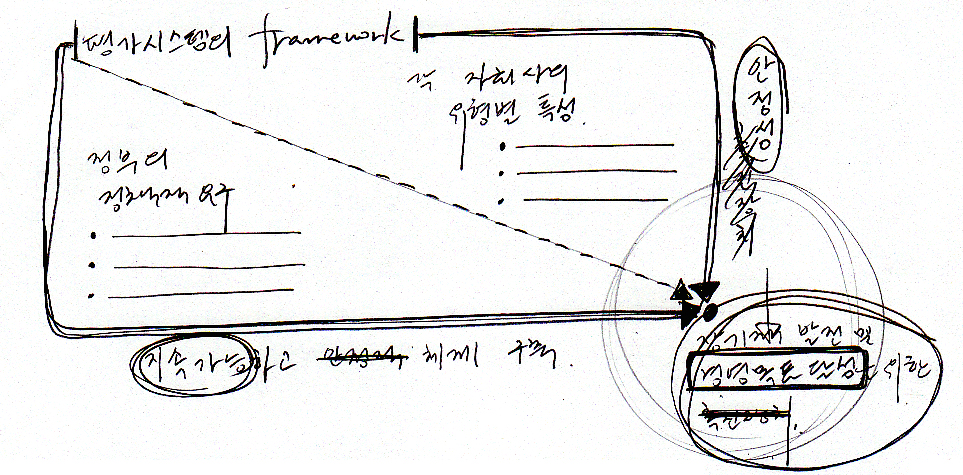 평가시스템의 framework
각 자회사의
유형별 특성.
안정성
정부의
정책적 요구
지속가능하고 체제 구축.
장기적 발전 및
경영목표 달성을 위한